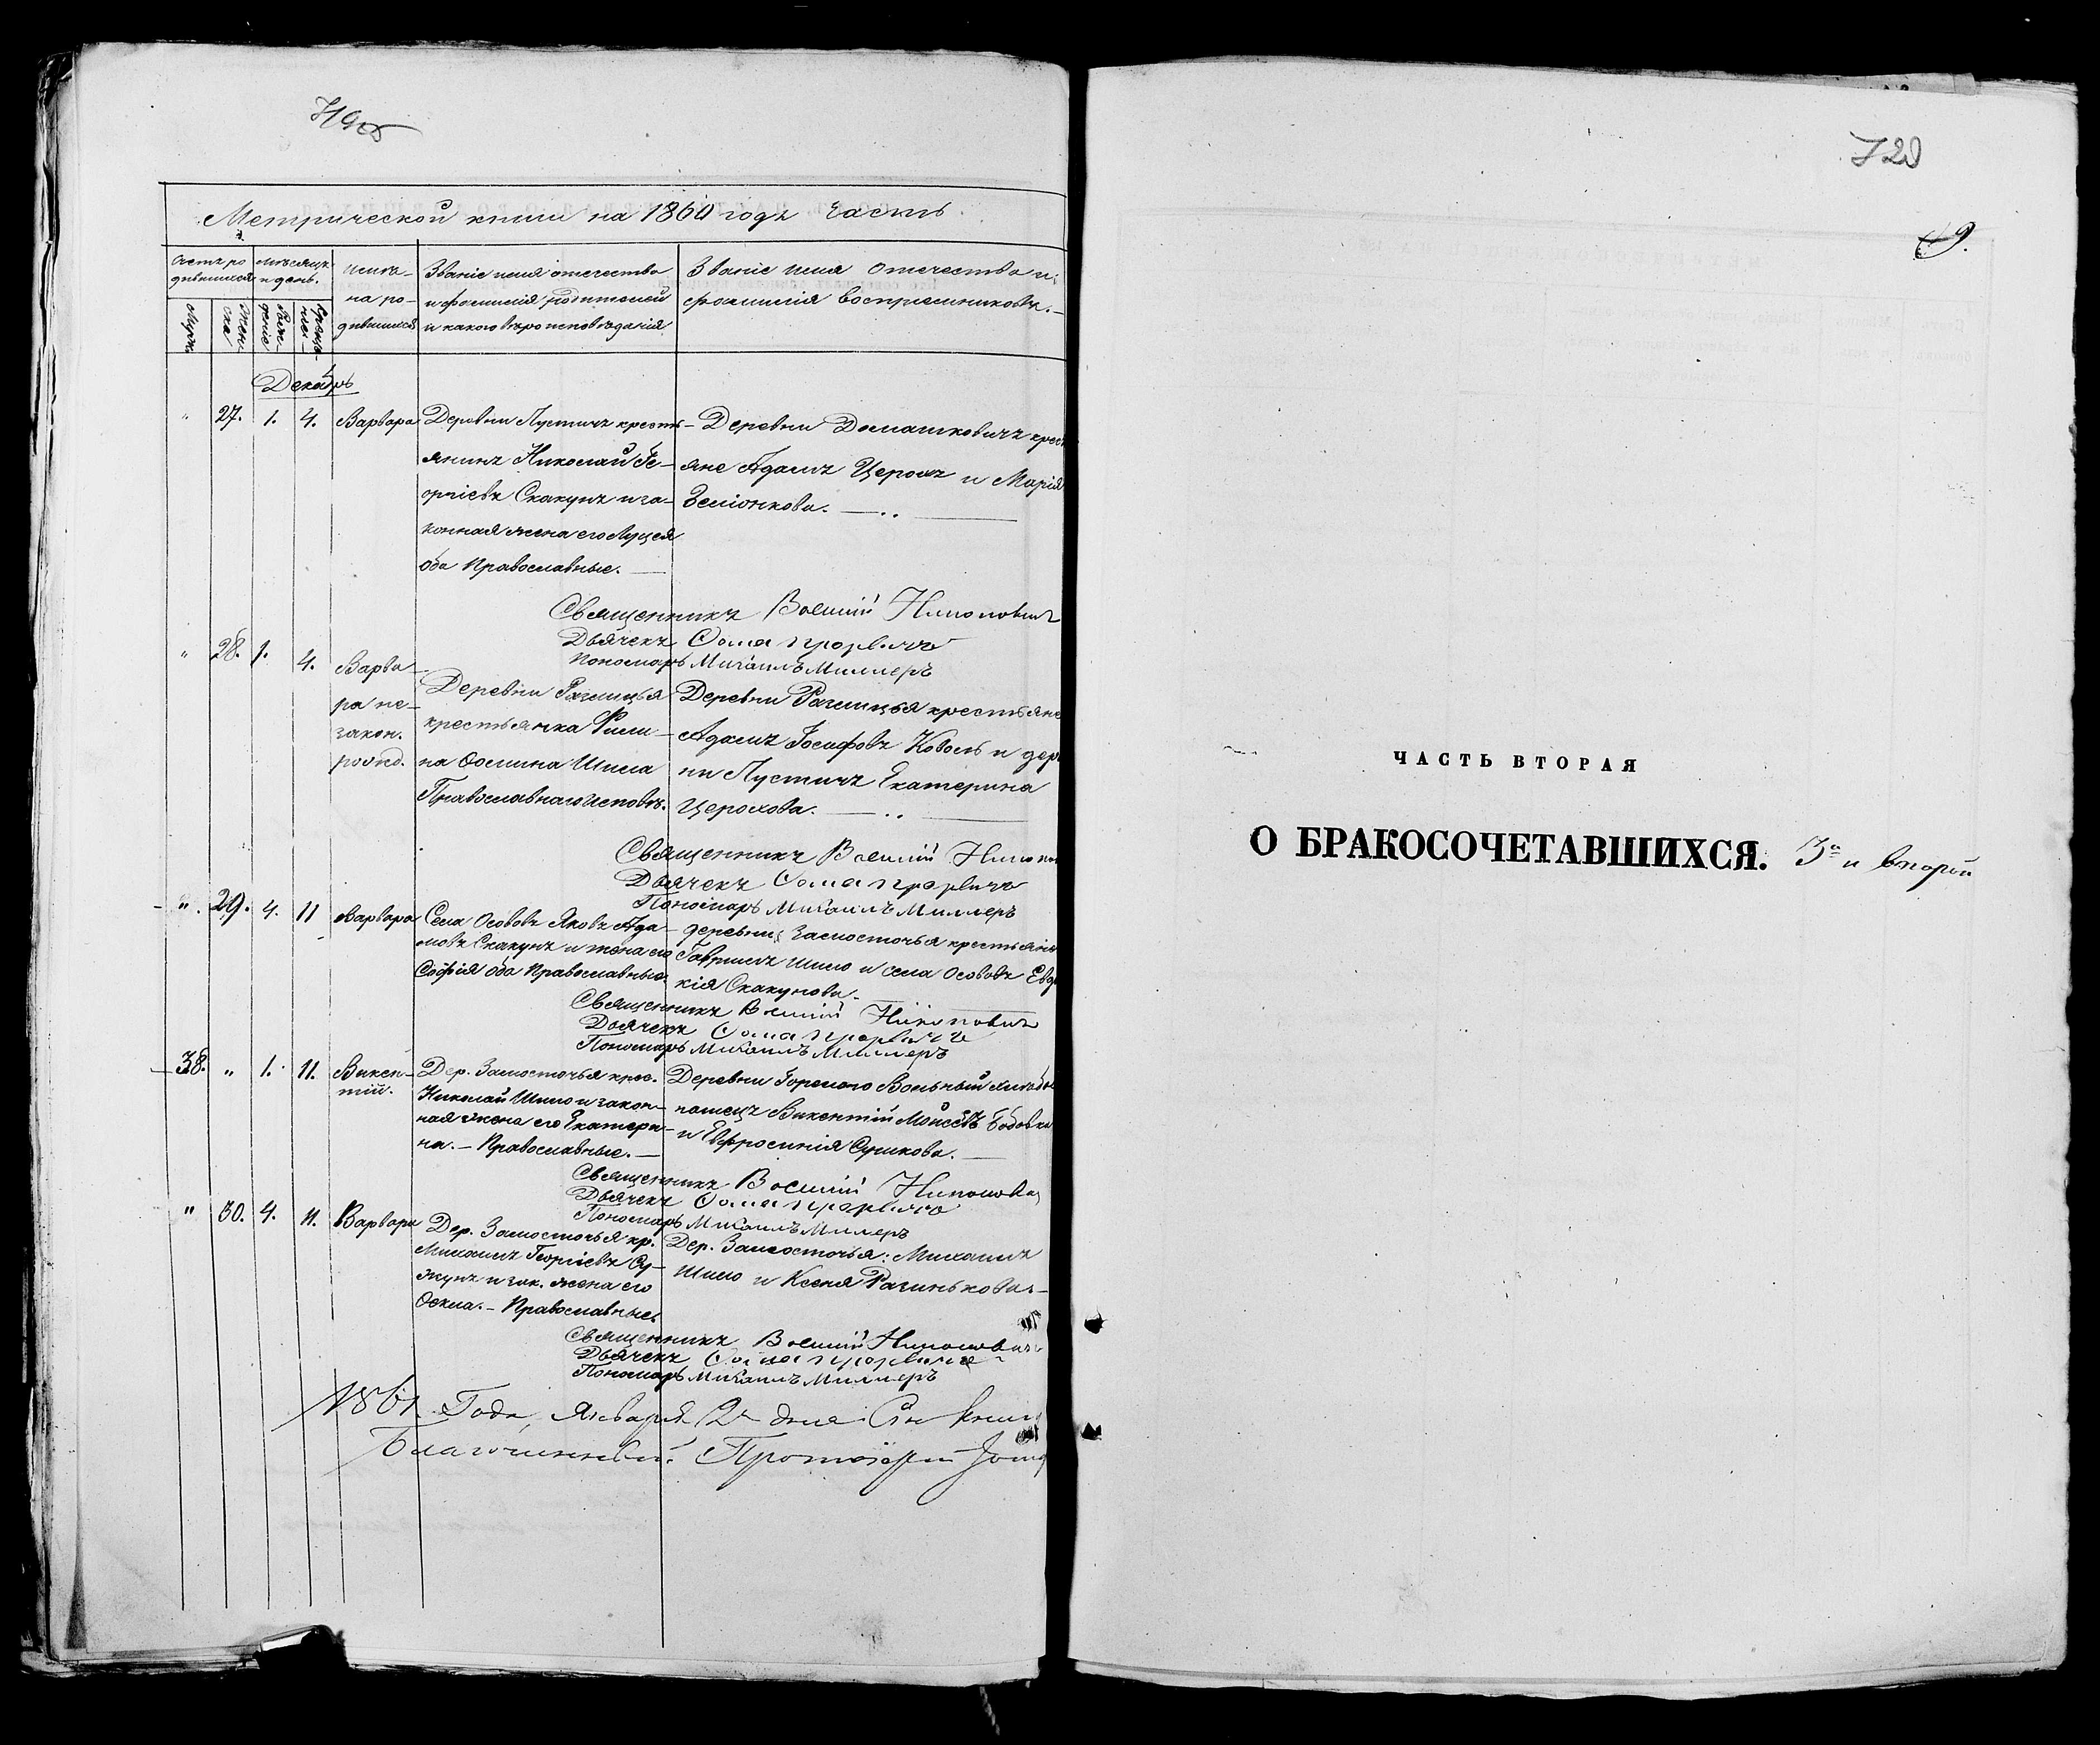 Метрической книги на 1860 годъ Часть
Счетъ ро
дившихся
мѣсяцъ
и день.
Имѣ-
на ро-
дившихся
Званіе имя отечество
и фамилія родителей
и какого вѣроисповѣданія
Званіе имя отечество и
фамилія воспріемниковъ.
Муж.
Жен-
ска
Рож-
деніе
Креще-
ніе
Декабрь
" 27. 1. 4. Варвара
Деревни Пустичъ кресть-
янинъ Николай Ге-
оргіевъ Скакунъ и за-
конная жена его Луцея
оба Православные.
Деревни Домашковичъ крест
яне Адамъ Церохъ и Марія
Земіонкова.
Священникъ Василій Никонович
Дьячекъ Ѳома
Пономарь Михаилъ Миллеръ
" 28. 1. 4. Варва-
ра не-
закон.
рожд.
Деревни Рагицья
крестьянка
на Ѳомина Шила
Православнаго исповѣ.
Деревни Рагицья крестьяне
Адамъ Іосифовъ Коволь и дерев
ни Пустичъ Екатерина
Церохова.
Священникъ Василій Никоно
Дьячекъ Ѳома
Пономарь Михаилъ Миллеръ
" 29. 4. 11 Варвара
Села Осововъ Яковъ Ада-
мовъ Скакунъ и жена его
Софія оба Православные
деревни Замосточья крестьянинъ
Гавріилъ Шило и села Осововъ Евдо
кія Скакунова.
Священникъ Василій Никонович
Дьячекъ Ѳома
Пономарь Михаилъ Миллеръ
38. " 1. 11. Викен-
тій.
Дер. Замосточья крес.
Николай Шило и закон-
ная жена его Екатери-
на. - Православные.
Деревни Горелого Вольный
пашецъ Викентій Мойсеевъ Бобовка
и Евфросинія Сушкова.
Священникъ Василій Никонови
Дьячекъ Ѳома
Пономарь Михаилъ Миллеръ
" 30. 4. 11. Варвара
Дер. Замосточья кр.
Михаилъ Георгіевъ Су-
жунъ и зак. жена его
Ѳекла. - Православные.
Дер. Замосточья: Михаилъ
Шило и Ксенія Рагинькова.
Священникъ Василій Никонович
Дьячекъ Ѳома
Пономарь Михаилъ Миллеръ
1861 Года, Января 12 дня Сію книгу
Благочинный Протоіерей
720
9.
ЧАСТЬ ВТОРАЯ
О БРАКОСОЧЕТАВШИХСЯ. 3я и второй